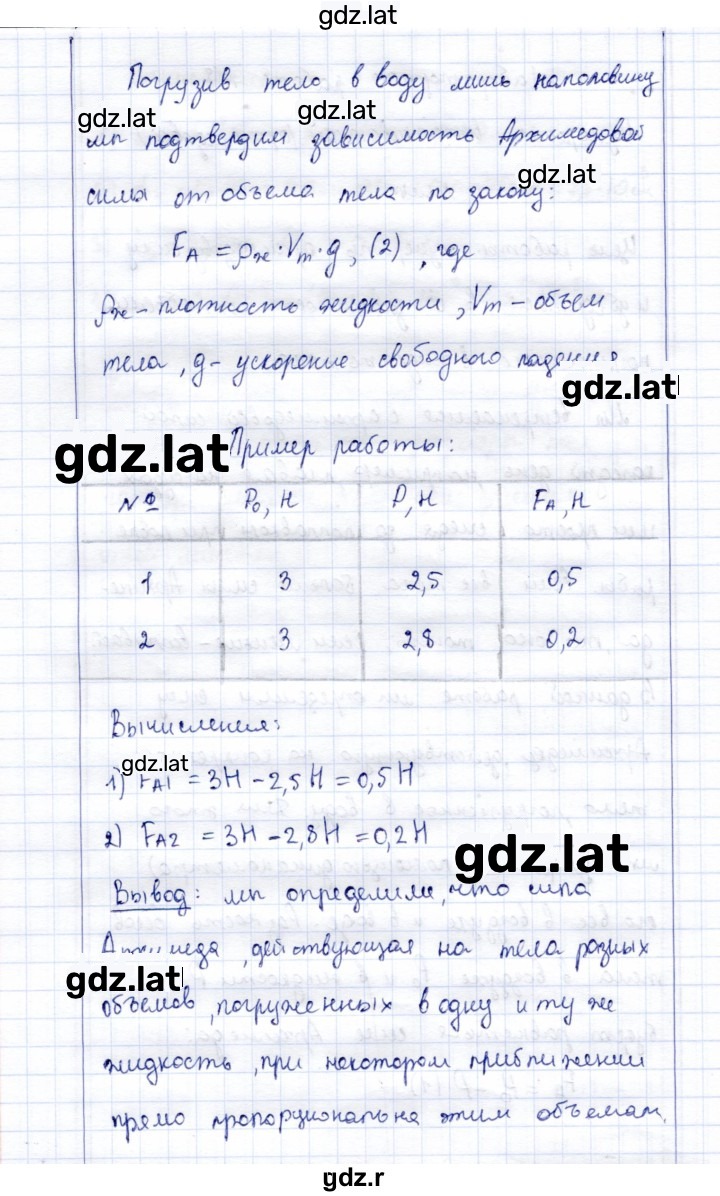 gdz.lat
Погрузив тело в воду лишь наполовину
gdz.lat
gdz.lat
мы подтвердим зависимость Архимедовой
gdz.lat
силы от объема тела по закону:
F_A = ρ_ж · V_т · g, (2), где
ρ_ж - плотность жидкости, V_т - объем
тела, g - ускорение свободного падения.
gdz.lat
gdz.lat
Пример работы:
P₀, Н P, Н F_A, Н
1 3 2,5 0,5
2 3 2,8 0,2
Вычисления:
gdz.lat
1) F_A1 = 3Н - 2,5Н = 0,5Н
2) F_A2 = 3Н - 2,8Н = 0,2Н
gdz.lat
Вывод: мы определили, что сила
Архимеда, действующая на тела разных
gdz.lat
объемов, погруженных в одну и ту же
жидкость, при некотором приближении
прямо пропорциональна этим объемам.
gdz.r